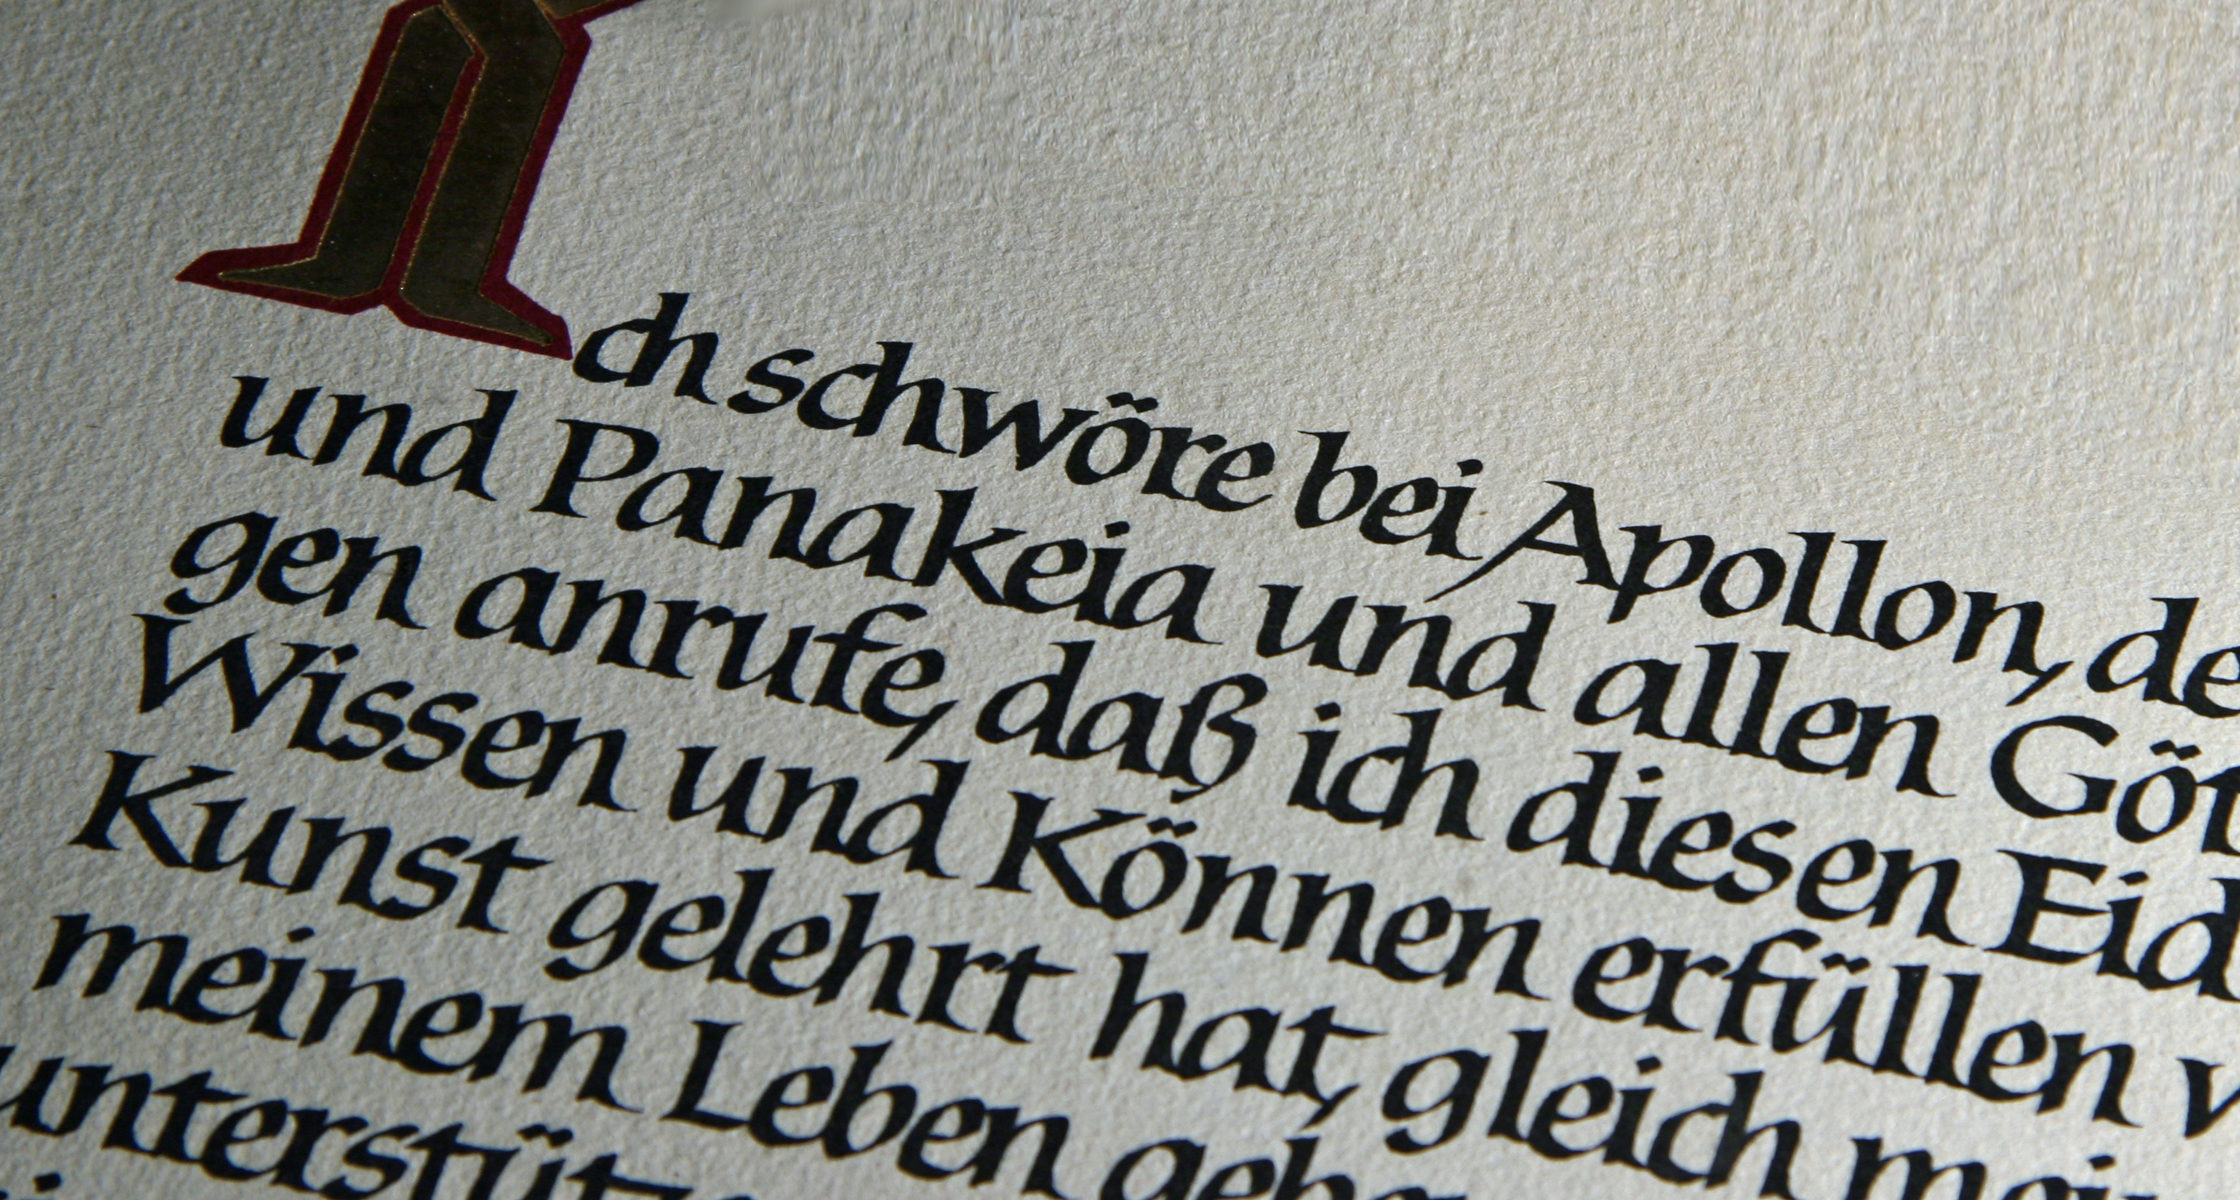 Ich schwöre bei Apollon, de
und Panakeia und allen Göt
gen anrufe, daß ich diesen Eid
Wissen und Können erfüllen
Kunst gelehrt hat, gleich mei
meinem Leben gebe
unterstütz